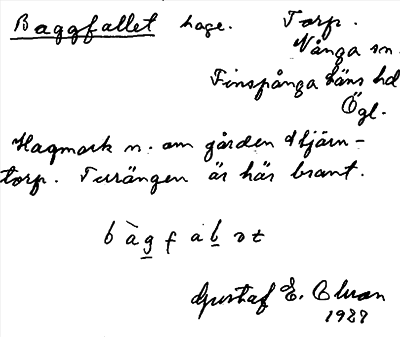 Baggfallet hage. Torp.
Vånga sn.
Finspånga läns hd
Ögl.
Hagmark n. om gården Stjärn-
torp. Terrängen är här brant.
Gustaf E.
1989